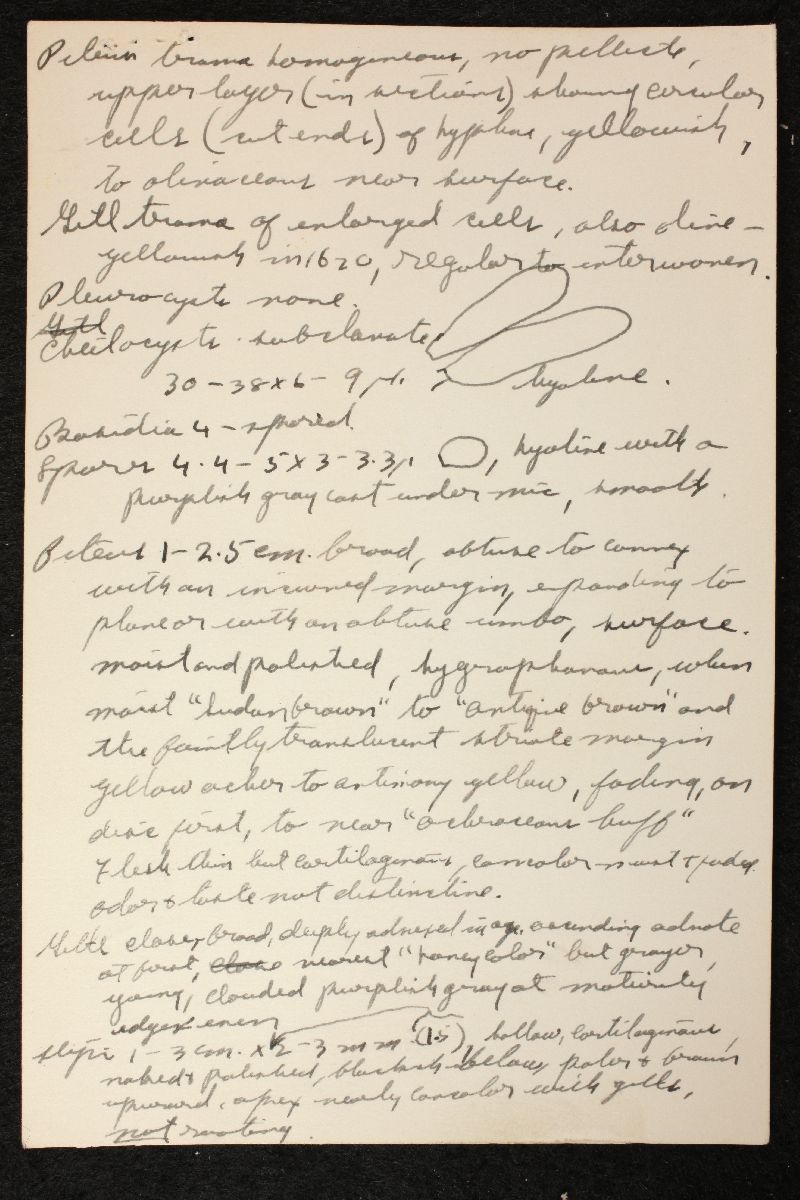 Pileus trama homogeneous, no pellicle,
upper layer (in sections) showing circular
cells (cut ends) of hyphae, yellowish,
to olivaceous near surface.
Gill trama of enlarged cells, also olive-
yellowish in 1620, regular to interwoven.
Pleurocysts none.
Gill
Cheilocysts. subclavate
30-38x6-9μ. hyaline.
Basidia 4-spored.
Spores 4.4-5x3-3.3μ, hyaline with a
purplish gray cast under mic, smooth.
Pileus 1-2.5 cm. broad, obtuse to convex
with an incurved margin, expanding to
plane or with an obtuse umbo, surface.
moist and polished, hygrophanous, when
moist "Sudan brown" to "antique brown" and
the faintly translucent striate margin
yellow ocher to antimony yellow, fading, on
disc first, to near "ochraceous buff"
Flesh thin but cartilaginous, concolor moist & faded
odor & taste not distinctive.
Gills close, broad, deeply adnexed in age, ascending adnate
at first, close nearest "honey color" but grayer,
young, clouded purplish gray at maturity
edges even
stipe 1-3 cm. x 2-3 mm (1.5), hollow, cartilaginous,
naked & polished, blackish below, paler & brown
upward, apex nearly concolor with gills,
not rooting.